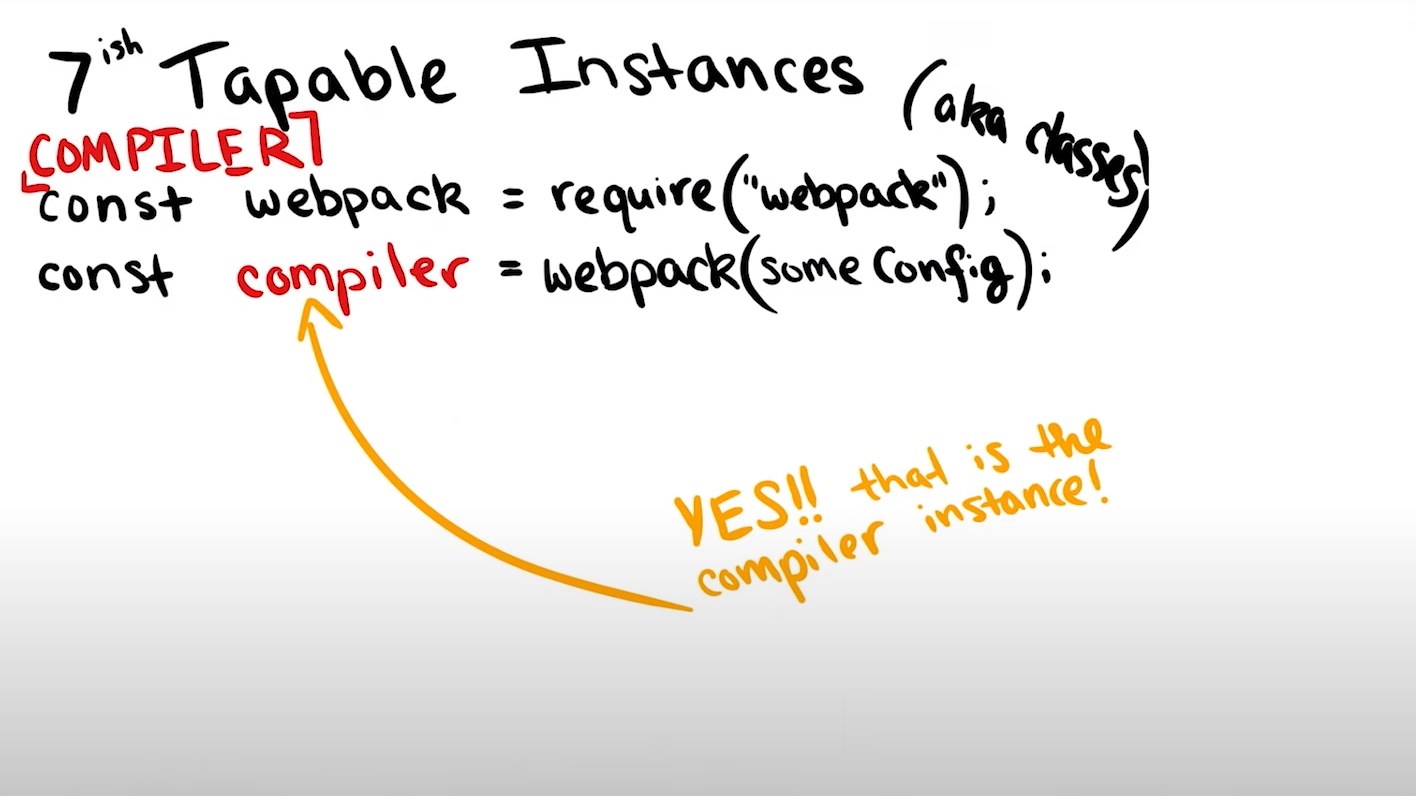 7ish Tapable Instances (aka classes!)
COMPILER
const webpack = require("webpack");
const compiler = webpack(someConfig);
YES!! that is the
compiler instance!